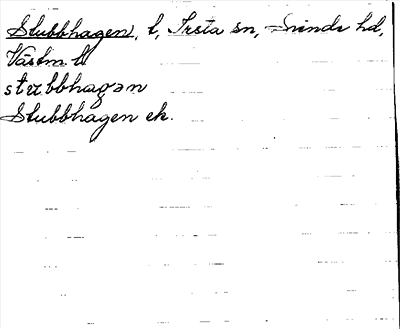 Stubbhagen, l, Irsta sn, Siende hd,
Västm. l.
stubbhagən
Stubbhagen ek.